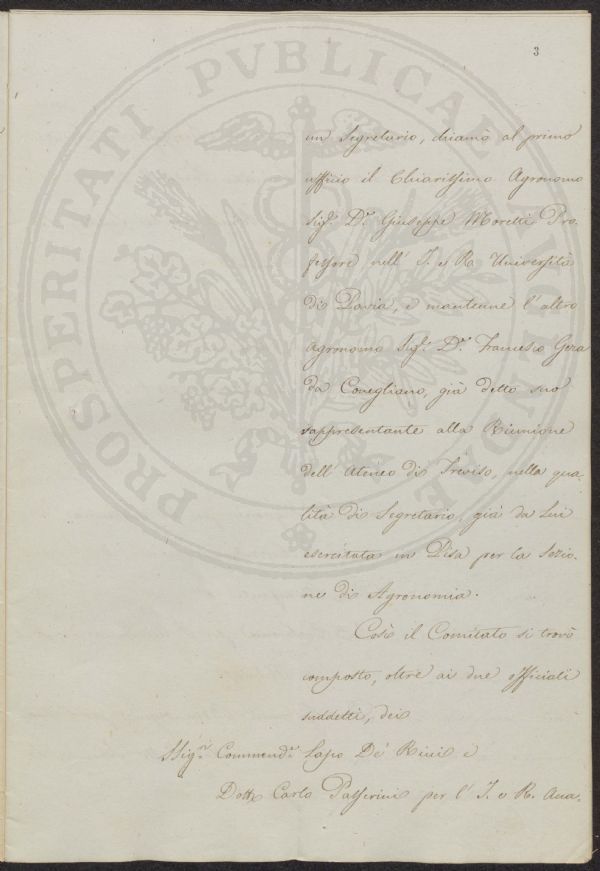 3
un Segretario, chiamò al primo
ufficio il Chiarissimo Agronomo
Sigr. Dr. Giuseppe Moretti Pro-
fessore nell' I. e R. Università
di Pavia, e mantenne l'altro
Agronomo Sigr. Dr. Francesco Gera
da Conegliano, già detto suo
rappresentante alla Riunione
dell' Ateneo di Treviso, nella qua-
lità di Segretario già da Lui
esercitata in Pisa per la Sezio-
ne di Agronomia.
Così il Comitato si trovò
composto, oltre ai due officiali
suddetti, dei
SSigri. Commendr. Lapo De' Ricci e
Dottr. Carlo Passerini per l' I. e R. Acca-
PROSPERITATI PVBLICAE